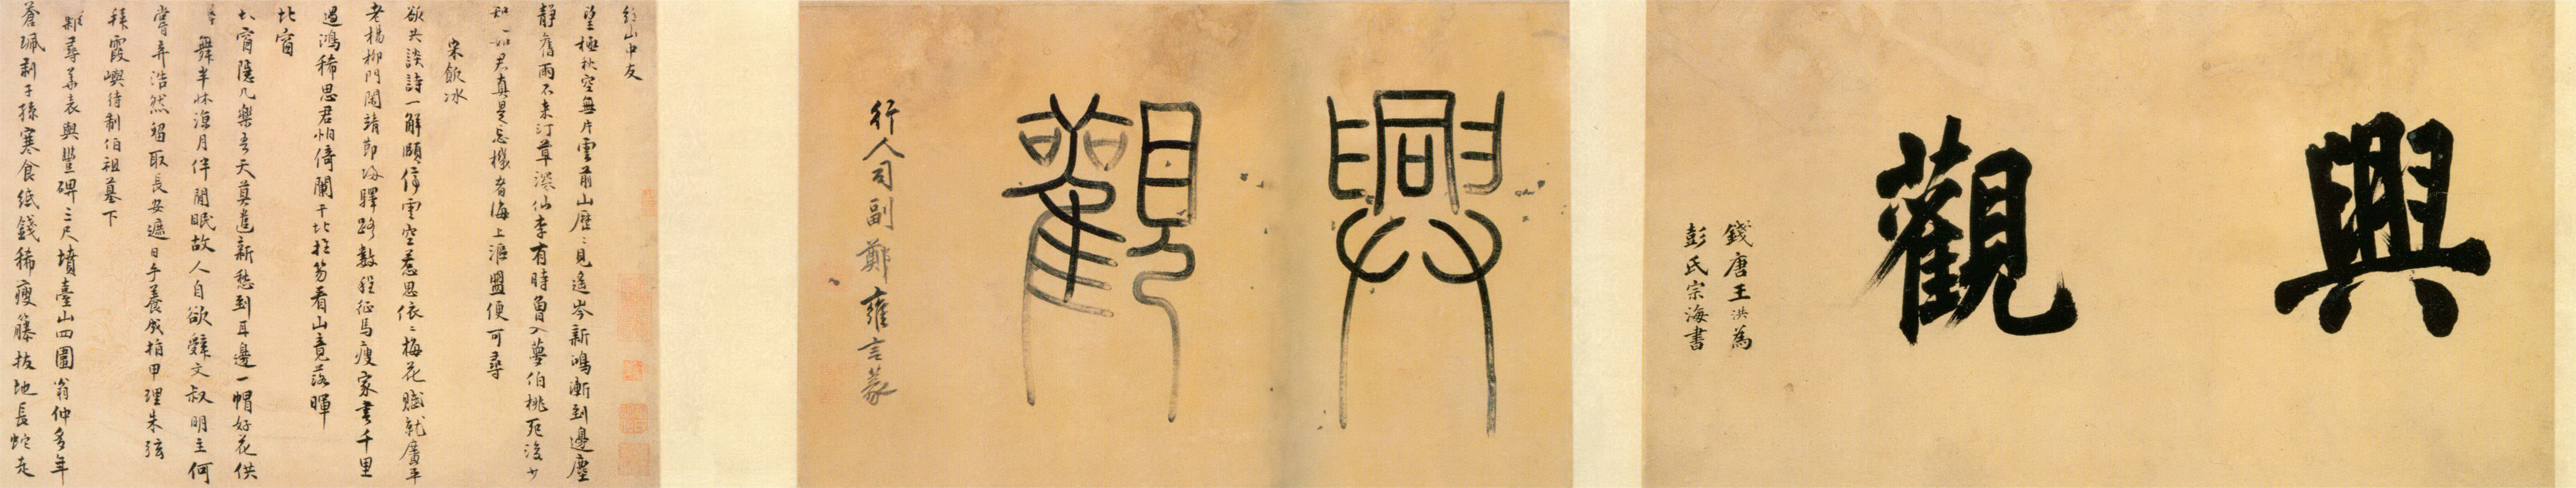 興觀
錢唐王洪為
彭氏宗海書
興觀
行人司副鄭雍言篆
山中友
望極秋空無片雲前山歷〻見遙岑新鴻漸到邊塵
靜舊雨不来汀草深仙李有時曾入夢伯桃死後少
知如君真是忘機者海上漚盟便可尋
宋飲冰
欲共談詩一解頤停雲空惹思依〻梅花賦就廣平
老楊柳門閑靖節歸驛路數程征馬瘦家書千里
過鴻稀思君怕倚闌干北拄笏看山竟落暉
北窗
北窗隱几樂吾天莫遣新愁到耳邊一帽好花供
舞半床涼月伴閒眠故人自欲辭文叔明主何
嘗弃浩然留取長安遮日手養成指甲理朱弦
拜霞嶼待制伯祖墓下
難尋華表與豐碑三尺墳臺山四圍翁仲多年
蒼珮剥子孫寒食紙錢稀瘦藤拔地長蛇走